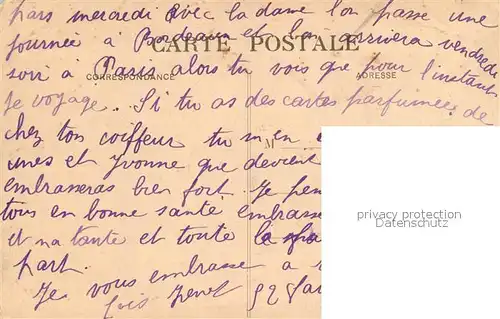 pars mercredi avec la dame l'on passe une
journée à Bordeaux et l'on arrivera vendredi
CARTE POSTALE
soir à Paris alors tu vois que pour l'instant
CORRESPONDANCE
ADRESSE
je voyage. Si tu as des cartes parfumées de
chez ton coiffeur tu m'en
M
unes et Yvonne que devient
embrasseras bien fort. Je
tous en bonne santé embrasse
et ma tante et toute la
part.
Je vous embrasse a
privacy protection
watermark